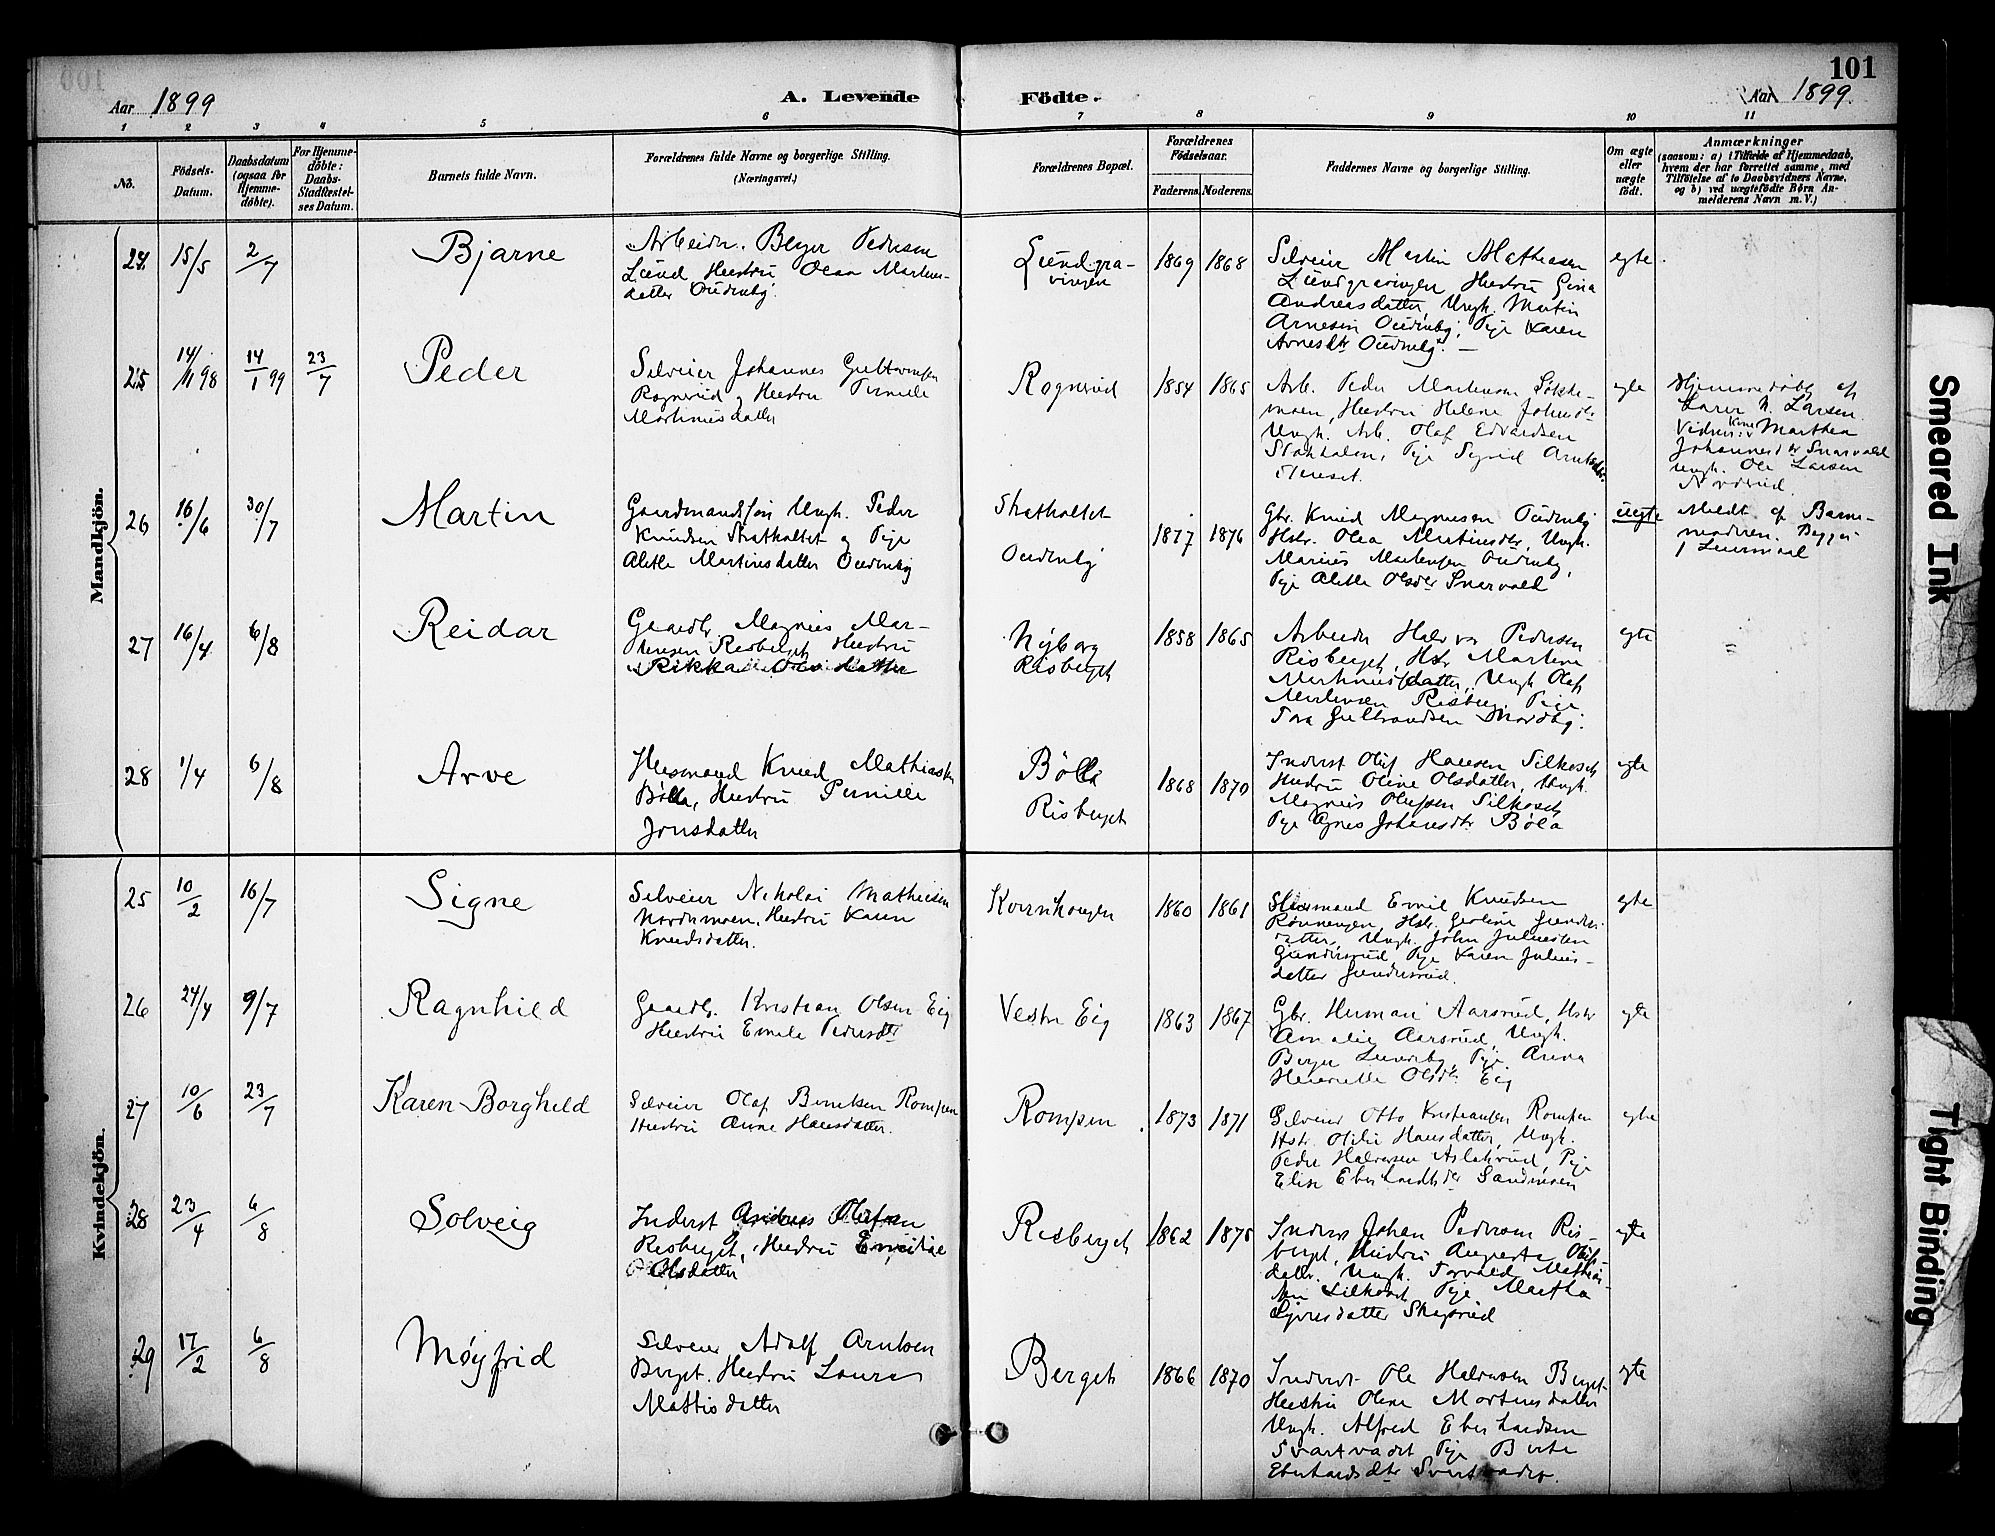 101
Aar 1899
A. Levende
Födte.
Aar 1899.
1 2 3 4 5 6 7 8 9 10 11
No.
Födsels-
Datum.
Daabsdatum
(ogsaa for
Hjemme-
döbte).
For Hjemme-
döbte:
Daabs-
Stadfæstel-
ses Datum.
Barnets fulde Navn.
Forældrenes fulde Navne og borgerlige Stilling.
(Næringsvei.)
Forældrenes Bopæl.
Forældrenes
Födselsaar.
Faderens. Moderens.
Faddernes Navne og borgerlige Stilling.
Om ægte
eller
uægte
födt.
Anmærkninger
(saasom: a) i Tilfælde af Hjemmedaab,
hvem der har forrettet samme, med
Tilföielse af to Daabsvidners Navne,
og b) ved uægtefödte Börn An-
melderens Navn m. V.)
Mandkjön.
24. 15/5 2/7
Bjarne
Arbeider Pedersen
Lund Hustru Martins-
datter
Lundgra-
vingen
1869 1868
Selveier Martin Mathiesen
Lundgravingen Hustru Gina
Andreasdatter, Ungk. Martin
Arnesen Pige Karen
Arnesdtr
egte
25 14/11 98 14/1 99 23/7
Peder
Selveier Johannes
Rognerud og Hustru Pernille
Martinusdatter
Rognerud
1854 1865
Arb. Peder Martinsen
moen, Hustru Helene
Ungk. Arb. Olaf Edvardsen
Pige Sigrid
egte
Hjemmedöbt af
Lærer N. Larsen.
Vidner: Kone Marthea
Johannesdtr Snarvold
Ungk. Ole Larsen
Norderud.
26 16/6 30/7
Martin
Gaardmandssön Ungk. Peder
Knudsen Strætholtet og Pige
Alette Martinsdatter
Strætholtet
1877 1876
Gbr. Knud Magnusen
Hstr. Olea Martinsdtr, Ungk.
Marius Martinsen
Pige Alette Olsdtr Snarvold
uegte
Meldt af Barne-
moderen. Begges
1 Leiermaal
27 16/4 6/8
Reidar
Gaardbr. Magnus Mar-
thinsen Risberget Hustru
Rikka Olesdatter
Nyborg
Risberget
1858 1865
Arbeider Halvor Pedersen
Risberget, Hstr Martine
Martinusdatter, Ungk Olaf
Martinsen Risberg, Pige
Gulbrandsen Nordby.
egte
28 1/4 6/8
Arve
Husmand Knud Mathiesen
Bölla, Hustru Pernille
Jonsdatter
Bölla
Risberget
1868 1870
Inderst Oluf Hansen Silkoset
Hustru Oline Olsdatter, Ungk.
Magnus Olufsen Silkoset
Pige Agnes Johansdtr Böla
egte
Kvindekjön.
25 10/2 16/7
Signe
Selveier Nikolai Mathiesen
Nordmoen, Hustru Karen
Knudsdatter.
Kvernhaugen
1860 1861
Husmand Emil Knudsen
Rönningen, Hstr. Gunder-
datter, Ungk. John Juliussen
Gundersrud Pige Karen Julius-
datter Gundersrud.
egte
26 24/4 9/7
Ragnhild
Gaardbr. Kristian Olsen Eig
Hustru Emile Pedersdtr
Vestre Eig
1863 1867
Gbr. Herman Aarsrud, Hstr
Amalie Aarsrud, Ungk.
Berger Lundeby, Pige Anna
Henriette Olsdtr. Eig
egte
27 10/6 23/7
Karen Borghild
Selveier Olaf Berntsen Rompen
Hustru Anne Hansdatter.
Rompen
1873 1871
Selveier Otto Kristiansen Rompen
Hstr. Otilie Hansdatter, Ungk.
Peder Halvorsen Aslakrud, Pige
Elise Eberhardtsdtr Sandmoen
egte
28 23/4 6/8
Solveig
Inderst Andreas Olufsen
Risberget, Hustru Emilie
Olsdatter
Risberget
1862 1875
Inderst Johan Pedersen Ris-
berget, Hustru Augusta Olufs-
datter. Ungk. Torvald Mathis-
sen Silkoset Pige Martha
egte
29 17/2 6/8
Møyfrid
Selveier Adolf Arntsen
Berget. Hustru Laura
Mattisdatter
Berget
1866 1870
Inderst Ole Halvorsen Berget
Hustru Olene Mortensdatter
Ungk. Alfred Eberhardsen
Svartvadet Pige Berte
Eberhardsdtr Svartvadet.
egte
Smeared Ink
Tight Binding